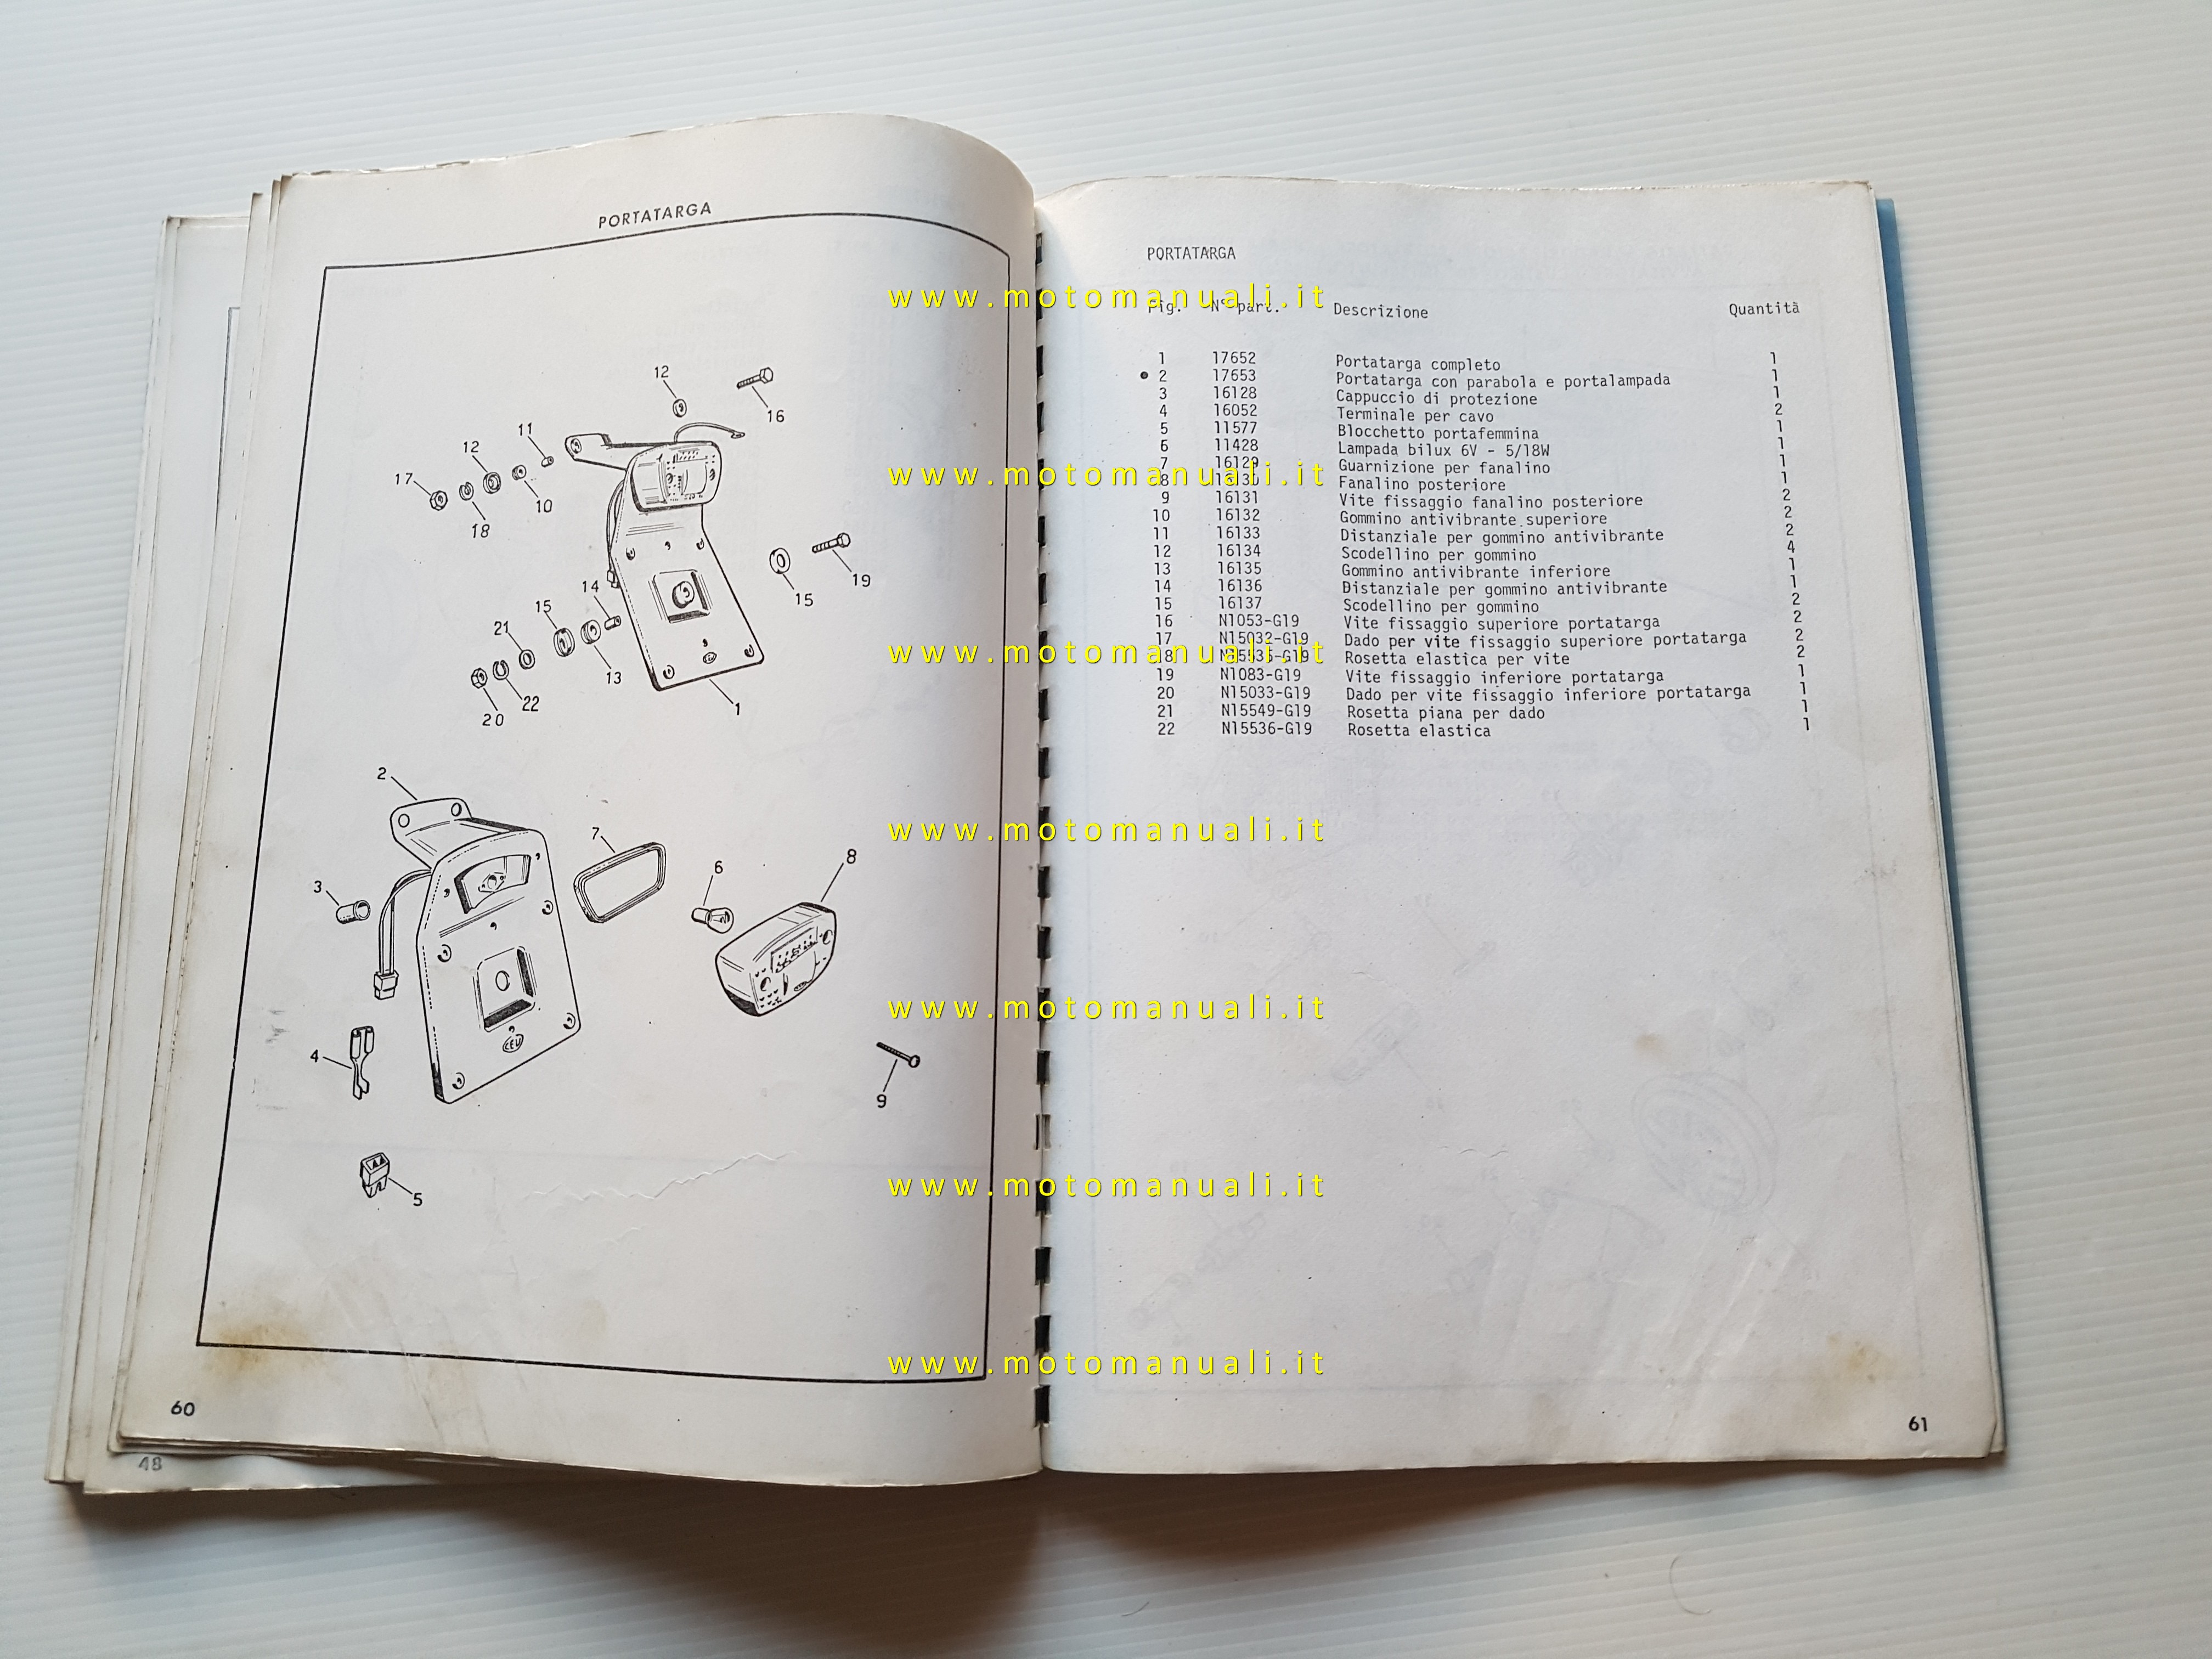 PORTATARGA
12
16
11
12
17
10
18
19
14
15
15
21
13
22
20
1
2
7
6
8
3
4
9
5
CEV
60
48
PORTATARGA
Fig. N° part. Descrizione Quantità
1 17652 Portatarga completo 1
• 2 17653 Portatarga con parabola e portalampada 1
3 16128 Cappuccio di protezione 1
4 16052 Terminale per cavo 2
5 11577 Blocchetto portafemmina 1
6 11428 Lampada bilux 6V - 5/18W 1
7 16129 Guarnizione per fanalino 1
8 16130 Fanalino posteriore 1
9 16131 Vite fissaggio fanalino posteriore 2
10 16132 Gommino antivibrante superiore 2
11 16133 Distanziale per gommino antivibrante 2
12 16134 Scodellino per gommino 4
13 16135 Gommino antivibrante inferiore 1
14 16136 Distanziale per gommino antivibrante 1
15 16137 Scodellino per gommino 2
16 N1053-G19 Vite fissaggio superiore portatarga 2
17 N15032-G19 Dado per vite fissaggio superiore portatarga 2
18 Rosetta elastica per vite 2
19 N1083-G19 Vite fissaggio inferiore portatarga 1
20 N15033-G19 Dado per vite fissaggio inferiore portatarga 1
21 N15549-G19 Rosetta piana per dado 1
22 N15536-G19 Rosetta elastica 1
61
www.motomanuali.it
www.motomanuali.it
www.motomanuali.it
www.motomanuali.it
www.motomanuali.it
www.motomanuali.it
www.motomanuali.it